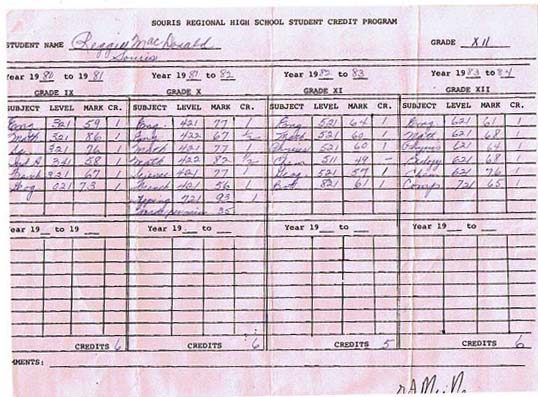 SOURIS REGIONAL HIGH SCHOOL STUDENT CREDIT PROGRAM
STUDENT NAME Reggie MacDonald GRADE XII
Souris
Year 19 80 to 19 81 Year 19 81 to 82 Year 19 82 to 83 Year 19 83 to 84
GRADE IX GRADE X GRADE XI GRADE XII
SUBJECT LEVEL MARK CR. SUBJECT LEVEL MARK CR. SUBJECT LEVEL MARK CR. SUBJECT LEVEL MARK CR.
Eng 321 59 1 Eng. 421 77 1 Eng 521 64 1 Eng 621 61 1
Math 321 86 1 Eng 422 67 1/2 Math 521 60 1 Math 621 68 1
Sc 321 76 1 Math 421 77 1 Physics 521 60 1 Physics 621 64 1
Ind A 341 58 1 Math 422 82 1/2 Chem 511 49 - 621 68 1
French 321 67 1 Science 421 77 1 Geog 521 57 1 Chem 621 76 1
Geog 021 73 1 French 421 56 1 821 61 1 Comp 721 65 1
Typing 721 93 1
35
Year 19 to 19 Year 19 to Year 19 to Year 19 to
CREDITS 6 CREDITS 6 CREDITS 5 CREDITS 6
MMENTS: